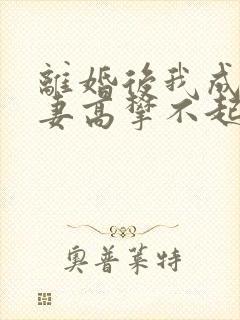 離婚後我成
妻高攀不起
奧普萊特